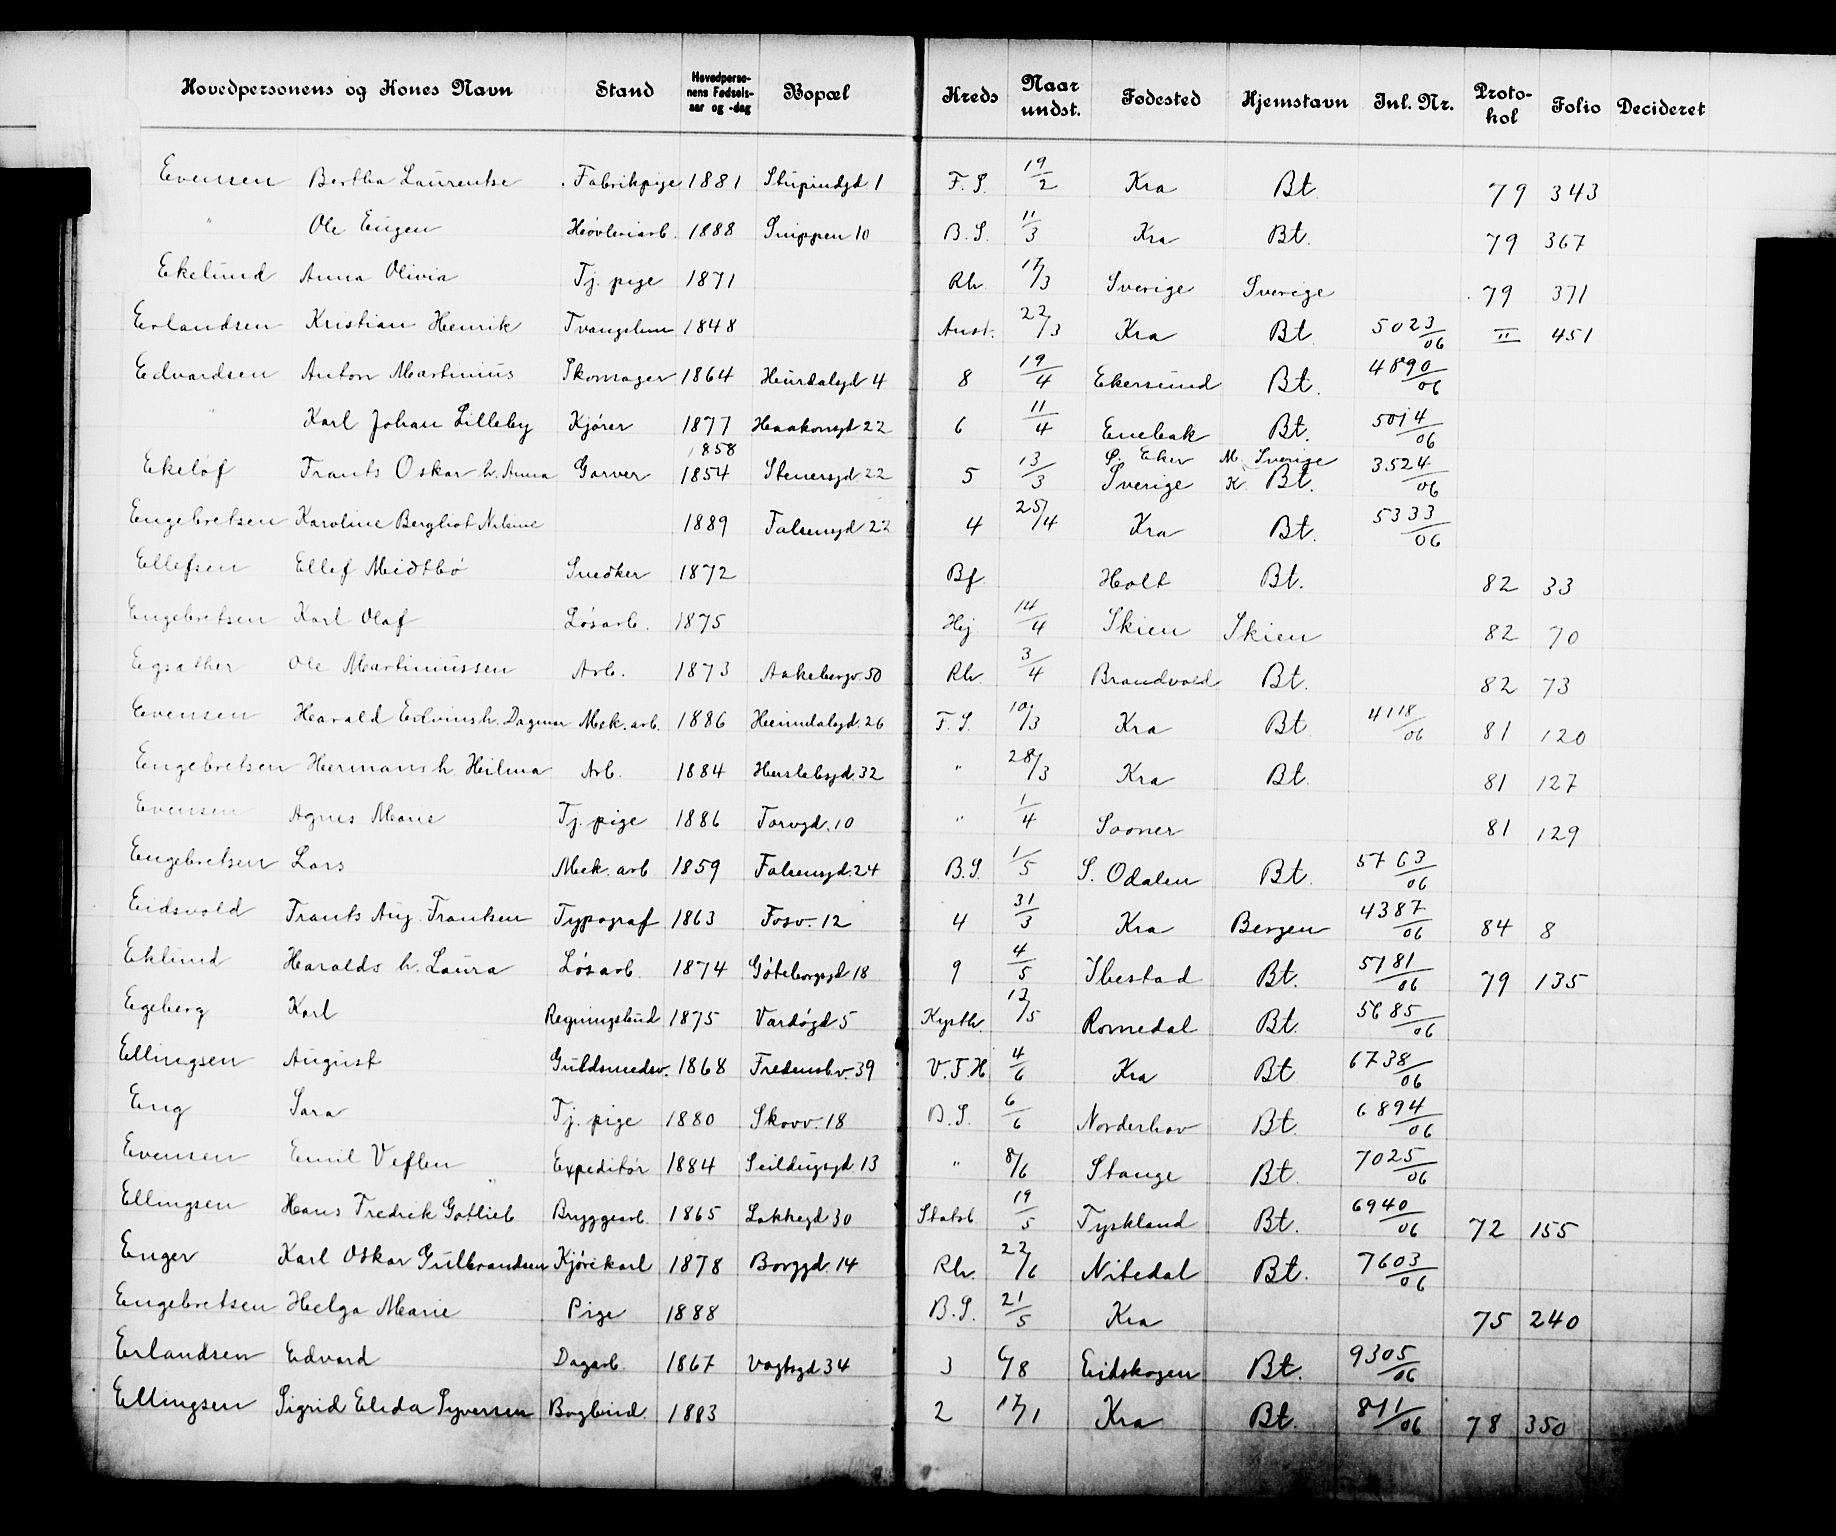 Hovedpersonens og Kones Navn Stand Hovedpersonens Fødselsaar og -dag Bopæl Kreds Naar undst. Fødested Hjemstavn Inl. Nr. Protokol Folio Decideret
Evensen Bertha Laurentse Fabrikpige 1881 Stupindgd 1 F. S. 19/2 Kra Bt. 79 343
" Ole Eugen Høvleriarb. 1888 Snippen 10 B. S. 11/3 Kra Bt. 79 367
Ekelund Anna Olivia Tj. pige 1871 Rh. 17/3 Sverige Sverige 79 371
Erlandsen Kristian Henrik Tvangslem 1848 Anst. 22/3 Kra Bt. 5023/06 II 451
Edvardsen Anton Martinius Skomager 1864 Hurdalsgd 4 8 19/4 Ekersund Bt. 4890/06
" Karl Johan Lilleby Kjører 1877 Haakonsgd 22 6 11/4 Enebak Bt. 5014/06
1858 S. Eker M. Sverige
Ekeløf Frants Oskar h. Anna Garver 1854 Stenersgd 22 5 13/3 Sverige K. Bt. 3524/06
Engebretsen Karoline Bergliot Nilsine 1889 Falsensgd 22 4 25/4 Kra Bt. 5333/06
Ellefsen Ellef Midtbø Snedker 1872 Bf. Holt Bt. 82 33
Engebretsen Karl Olaf Løsarb. 1875 Hej 14/4 Skien Skien 82 70
Egsather Ole Martiniussen Arb. 1873 Aakebergv. 50 Rh. 3/4 Brandvold Bt. 82 73
Evensen Harald Edvins h. Dagmar Mek. arb. 1886 Heimdalsgd. 26 F. S. 10/3 Kra Bt. 4118/06 81 120
Engebretsen Hermans h. Hilma Arb. 1884 Herslebsgd 32 " 28/3 Kra Bt. 81 127
Evensen Agnes Marie Tj. pige 1886 Torvgd. 10 " 1/4 Sooner 81 129
Engebretsen Lars Mek. arb 1859 Falsensgd. 24 B. S. 1/5 S. Odalen Bt. 5763/06
Eidsvold Frants Aug. Frantsen Typograf 1863 Fosv. 12 4 31/3 Kra Bergen 4387/06 84 8
Eklund Haralds h. Laura Løsarb. 1874 Göteborgsgd 18 9 4/5 Ibestad Bt. 5181/06 79 135
Egeberg Karl Regningsbud 1875 Vardøgd 5 Kysth. 12/5 Romedal Bt. 5685/06
Ellingsen August Guldsmedsv. 1868 Fredensb.v. 39 V. F. H. 4/6 Kra Bt 6738/06
Eng Sara Tj. pige 1880 Skovv. 18 B. S. 6/6 Norderhov Bt. 6894/06
Evensen Emil Veflen Expeditør 1884 Seildugsgd 13 " 8/6 Stange Bt. 7025/06
Ellingsen Hans Fredrik Gotlieb Bryggearb. 1865 Lakkegd 30 Statsb 19/5 Tyskland Bt. 6940/06 72 155
Enger Karl Oskar Gulbrandsen Kjørekarl 1878 Borggd. 14 Rh. 22/6 Nitedal Bt. 7603/06
Engebretsen Helga Marie Pige 1888 B. S. 21/5 Kra 75 240
Erlandsen Edvard Dagarb. 1867 Vogtsgd 34 3 6/8 Eidskogen Bt. 9305/06
Ellingsen Sigrid Elida Syversen Bogbind. 1883 2 17/1 Kra Bt. 811/06 78 350